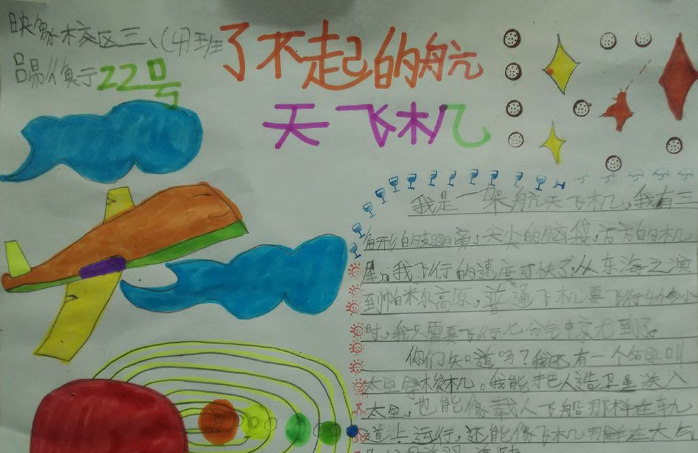 映象校区三、(4)班
易焕宁22号
了不起的航
天飞机
我是一架航天飞机,我有三
角形的翅膀,尖尖的脑袋,方方的机
尾。我飞行的速度可快了,从东海之滨
到帕米尔高原,普通飞机要飞行4个多小
时,我只需要飞行七分钟就到了。
你们知道吗?我还有一个名字叫
太空穿梭机。我能把人造卫星送入
太空,也能像载人飞船那样在轨
道上运行,还能像飞机那样在大气